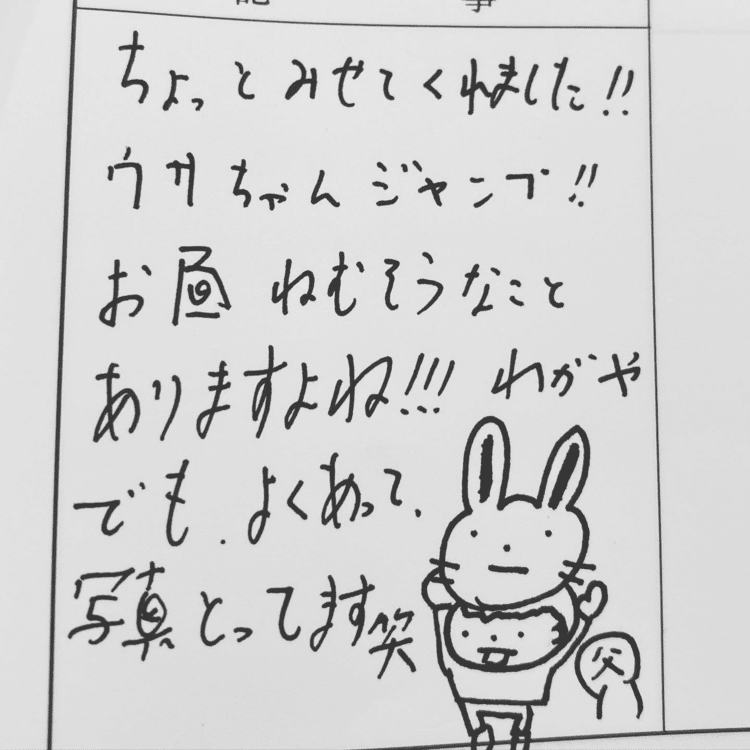 記事
ちょっとみせてくれました!!
ウサちゃんジャンプ!!
お昼ねむそうなこと
ありますよね!!! わがや
でも.よくあって、
写真とってます笑
父